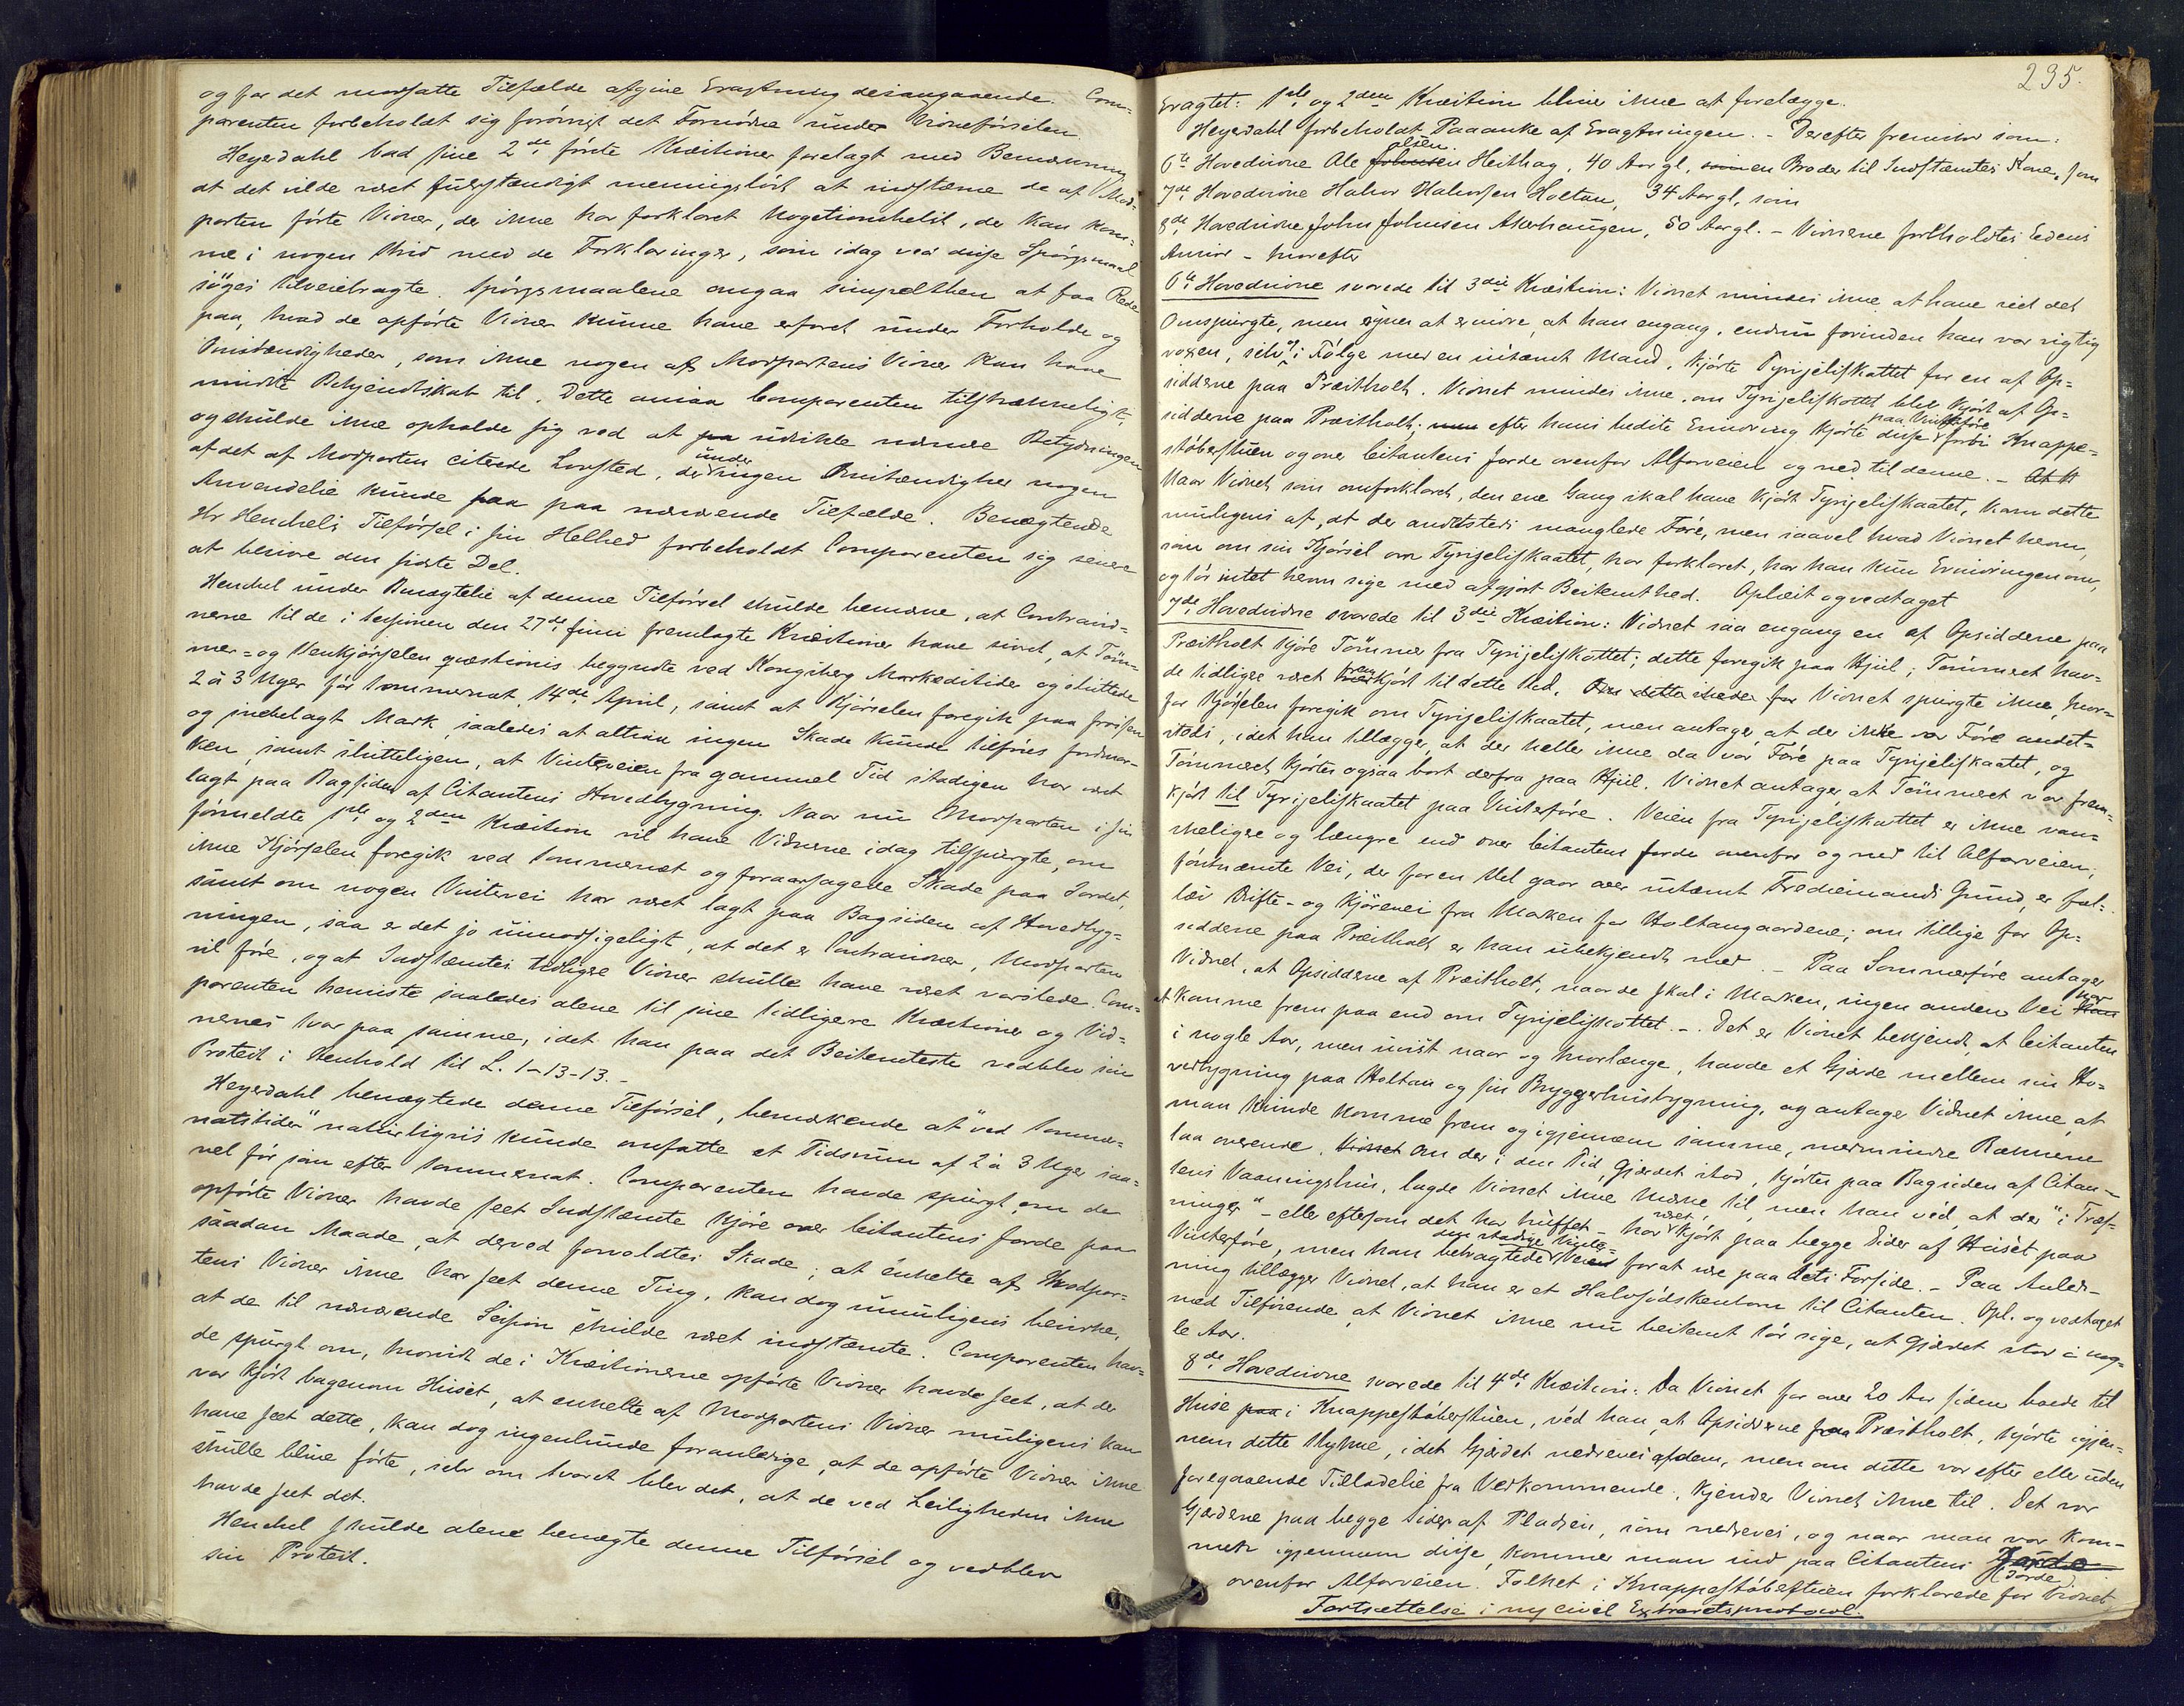 og for det modsatte Tilfælde afgive Eragtning desangaaende. Com-
parenten forbeholdt sig forøvrigt det Fornødne under Vidneførselen.
Heyerdahl bad sine 2de første Kvæstioner forelagt med Bemærkning
at det vilde være fuldstændigt meningsløst at indstævne de af Mod-
parten førte Vidner, der ikke har forklaret Nogetsomhelst, der kan kom-
me i nogen Strid med de Forklaringer, som idag ved disse Spørgsmaal
søges tilveiebragte. Spørgsmaalene angaa simpelthen at faa Rede
paa, hvad de opførte Vidner kunne have erfaret under Forholde og
Omstændigheder, som ikke nogen af Modpartens Vidner kan have
mindste Bekjendtskab til. Dette ansaa Comparenten tilstrækkeligt,
og skulde ikke opholde sig ved at udvikle nærmere Betydningen
af det af Modparten citerede Lovsted, der under ingen Omstændighed nogen
Anvendelse kunde faa paa nærværende Tilfælde. Benægtende
Hr Henchels Tilførsel i sin Helhed forbeholdt Comparenten sig senere
at besvare den sidste Del.
Henchel under Benægtelse af denne Tilførsel skulde bemærke, at Contravid-
nerne til de i Sessionen den 27de Juni fremlagte Kvæstioner have svaret, at Tøm-
mer- og Vedkjørselen quæstionis begyndte ved Kongsberg Markedstider og sluttede
2 à 3 Uger før Sommernat, 14de April, samt at Kjørselen foregik paa frossen
og snebelagt Mark, saaledes at altsaa ingen Skade kunde tilføres Jordmar-
ken, samt slutteligen, at Vinterveien fra gammel Tid stadigen har været
lagt paa Bagsiden af Citantens Hovedbygning. Naar nu Modparten i sin
førmeldte 1ste og 2den Kvæstion vil have Vidnerne idag tilspurgte, om
ikke Kjørselen foregik ved Sommernat og foraarsagede Skade paa Jordet,
samt om nogen Vintervei har været lagt paa Bagsiden af Hovedbyg-
ningen, saa er det jo uimodsigeligt, at det er Contravidner, Modparten
vil føre, og at Indstævntes tidligere Vidner skulle have været varslede. Com-
parenten henviste saaledes alene til sine tidligere Kvæstioner og Vid-
nernes Svar paa samme, idet han paa det Bestemteste vedblev sin
Protest i Henhold til L. 1-13-13.-
Heyerdahl benægtede denne Tilførsel, bemærkende at "ved Sommer-
natstider" naturligvis kunde omfatte et Tidsrum af 2 à 3 Uger saa-
vel før som efter Sommernat. Comparenten havde spurgt, om de
opførte Vidner havde seet Indstævnte kjøre over Citantens Jorde paa
saadan Maade, at derved forvoldtes Skade; at enkelte af Modpar-
tens Vidner ikke har seet denne Ting, kan dog umuligens bevirke,
at de til nærværende Session skulde været indstævnte. Comparenten hav-
de spurgt om, hvorvidt de i Kvæstionerne opførte Vidner havde seet, at der
var kjørt bagenom Huset, at enkelte af Modpartens Vidner muligens kan
have seet dette, kan dog ingenlunde foranledige, at de opførte Vidner ikke
skulle blive førte, selv om Svaret blev det, at de ved Leiligheden ikke
havde seet det.
Henchel skulde alene benægte denne Tilførsel og vedblev
sin Protest.
295.
Eragtet: 1ste og 2den Kvæstion blive ikke at forelægge.
Heyerdahl forbeholdt Paaanke af Eragtningen. - Derefter fremstod som:
6te Hovedvidne Ole Olsen Heithag, 40 Aar gl, en Broder til Indstævntes Kone, som
7de Hovedvidne Halvor Halvorsen Holtan, 34 Aar gl, som
8de Hovedvidne John Johnsen Akerhaugen, 50 Aar gl. - Vidnerne forholdtes Edens
Ansvar - hvorefter
6te Hovedvidne svarede til 3die Kvæstion: Vidnet mindes ikke at have seet det
Omspurgte, men synes at erindre, at han engang, endnu førinden han var rigtig
voxen, selv i Følge med en unævnt Mand, kjørte Tyrijeliskattet for en af Op-
sidderne paa Præstholt. Vidnet mindes ikke, om Tyrijeliskattet blev kjørt af Op-
sidderne paa Præstholt; efter hans bedste Erindring kjørte disse paa Vinterføre forbi Knappe-
støberstuen og over Citantens Jorde ovenfor Alfarveien og ned til denne. -
Naar Vidnet som omforklaret, den ene Gang skal have kjørt Tyrijeliskaatet, kan dette
muligens af, at der andetsteds manglede Føre, men saavel hvad Vidnet herom,
som om sin Kjørsel om Tyrijeliskaatet, har forklaret, har han kun Erindringen om,
og tør intet herom sige med afgjort Bestemthed. Oplæst og vedtaget
7de Hovedvidne svarede til 3die Kvæstion: Vidnet saa engang en af Opsidderne paa
Præstholt kjøre Tømmer fra Tyrijeliskattet; dette foregik paa Hjul; Tømmeret hav-
de tidligere været kjørt til dette Sted. Vidnet spurgte ikke, hvor-
for Kjørselen foregik om Tyrijeliskaatet, men antager at der ikke var Føre andet-
steds, idet han tillægger, at der heller ikke da var Føre paa Tyrijeliskaatet, og
Tømmeret kjørtes ogsaa bort derfra paa Hjul. Vidnet antager, at Tømmeret var frem-
kjørt til Tyrijeliskaatet paa Vinterføre. Veien fra Tyrijeliskattet er ikke van-
skeligere og længere end over Citantens Jorde ovenfor og ned til Alfarveien,
førnævnte Vei, der for en Del gaar over unævnt Fredienandi Grund, er fæl-
les Drifte- og Kjørevei fra Marken for Holtangaardene; om tillige for Op-
sidderne paa Præstholt er han ubekjendt med. - Paa Sommerføre antager
Vidnet, at Opsidderne af Præstholt, naar de skal i Marken, ingen anden Vei har
at komme frem paa end om Tyrijeliskottet. - Det er Vidnet bekjendt, at Citanten
i nogle Aar, men uvist naar og hvorlænge, havde et Gjærde mellem sin Ho-
vedbygning paa Holtan og sin Bryggerhusbygning, og antager Vidnet ikke, at
man kunde komme frem og igjennem samme, medmindre Ræmmene
laa overende. Om der i den Tid, Gjærdet stod, kjørtes paa Bagsiden af Citan-
tens Vaaningshus, lagde Vidnet ikke Mærke til, men han véd, at der "i Træf-
ninger" - eller eftersom det har truffet - har været kjørt paa begge Sider af Huset paa
Vinterføre, men han betragtede den stadige Vinter-
Vei for at være paa dets Forside. - Paa Anled-
ning tillægger Vidnet, at han er et Halvsødskenbarn til Citanten. Opl. og vedtaget
med Tilføiende, at Vidnet ikke nu bestemt tør sige, at Gjærdet stod i nog-
le Aar.
8de Hovedvidne svarede til 4de Kvæstion: Da Vidnet for over 20 Aar siden boede til
Huse i Knappestøberstuen, véd han, at Opsidderne paa Præstholt, kjørte igjen-
nem dette Stykke, idet Gjærdet nedreves af dem, men om dette var efter eller uden
foregaaende Tilladelse fra Vedkommende, kjender Vidnet ikke til. Det var
Gjærderne paa begge Sider af Pladsen, som nedreves, og naar man var kom-
met igjennem disse, kommer man ind paa Citantens Jorde
ovenfor Alfarveien. Folket i Knappestøberstuen forklarede for Vidnet,
Fortsættelse i ny civil Extraretsprotocol.